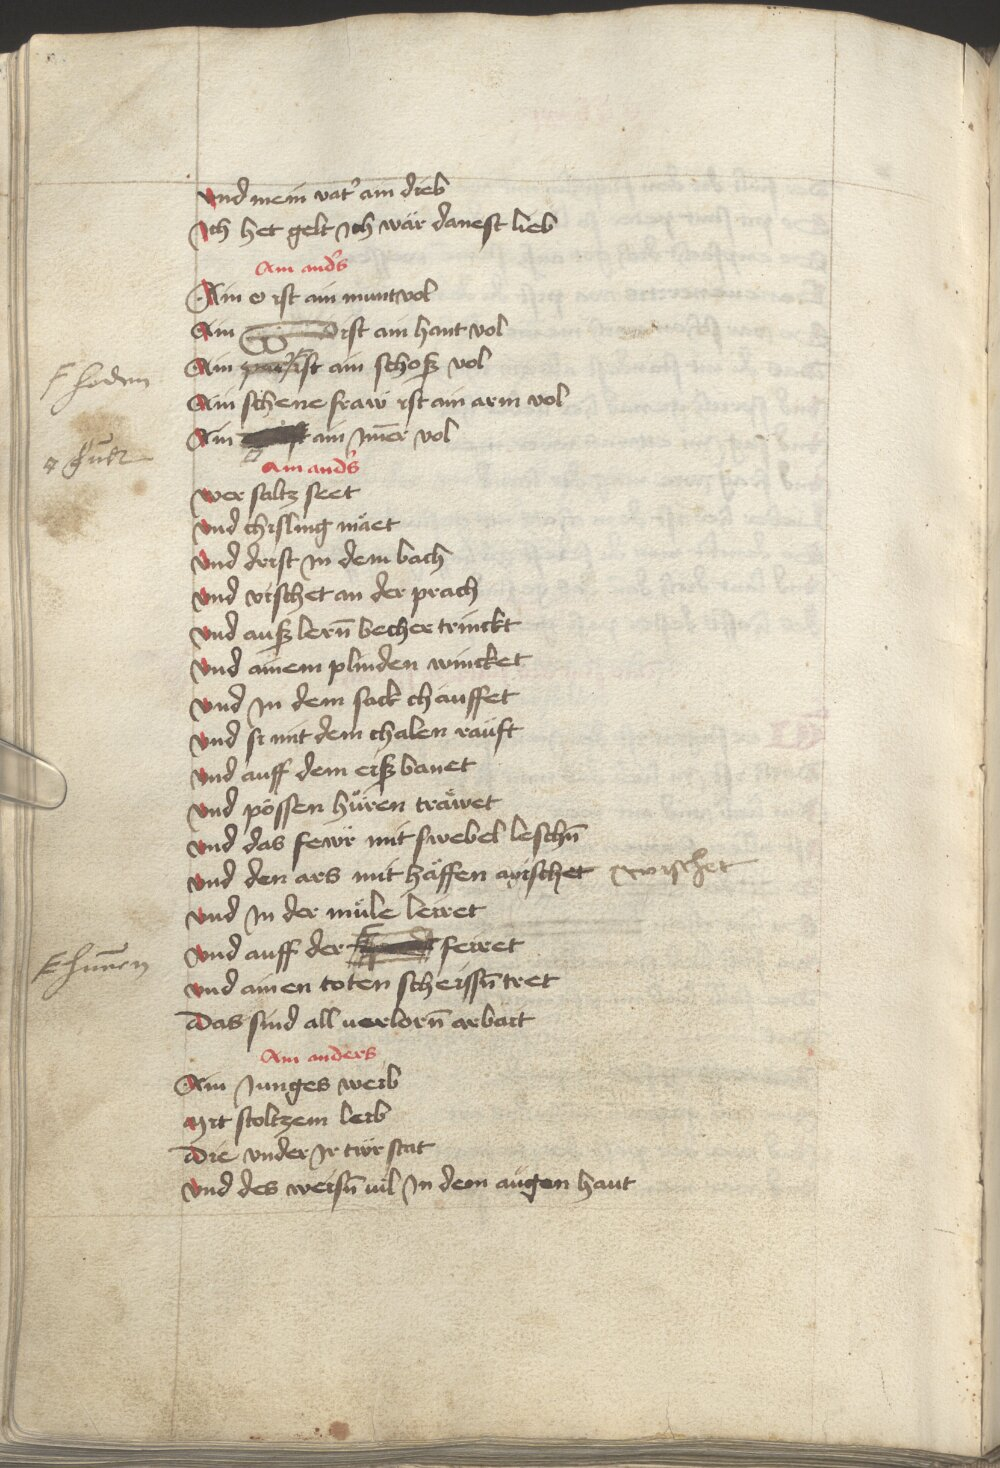 Vnd mein vat' ain dieb
Ich het gelt Ich wär danest lieb
Ain and's
Ain o ist ain muntvol
Ain ist ain hant vol
Ain ist ain schosz vol
F hoden
Ain schene fraw ist ain arm vol
Ain ain Im̄er vol
Ain and's
wer saltz seet
Vnd chisling mäet
Vnd drist In dem bach
Vnd vischet an der prach
Vnd ausz lern̄ becher trinckt
Vnd ainem plinden wincket
Vnd In dem sack chauffet
Vnd si mit dem chalen rauft
Vnd auff dem eisz bauet
Vnd pössen hüren träwet
Vnd das fewr mit swebel leschn̄
Vnd den ars mit häffen wischet wischet
Vnd In der müle leiret
Vnd auff der feiret
Vnd ainen toten scheissn̄ tret
Das sind all uerlorn̄ arbait
Ain anders
Ain Junges weib
Mit stoltzem leib
Die vnder Ir tür stat
Vnd des weissn̄ uil In dem augen haut